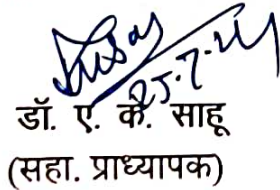 25.7.24
डॉ. ए. के. साहू
(सहा. प्राध्यापक)